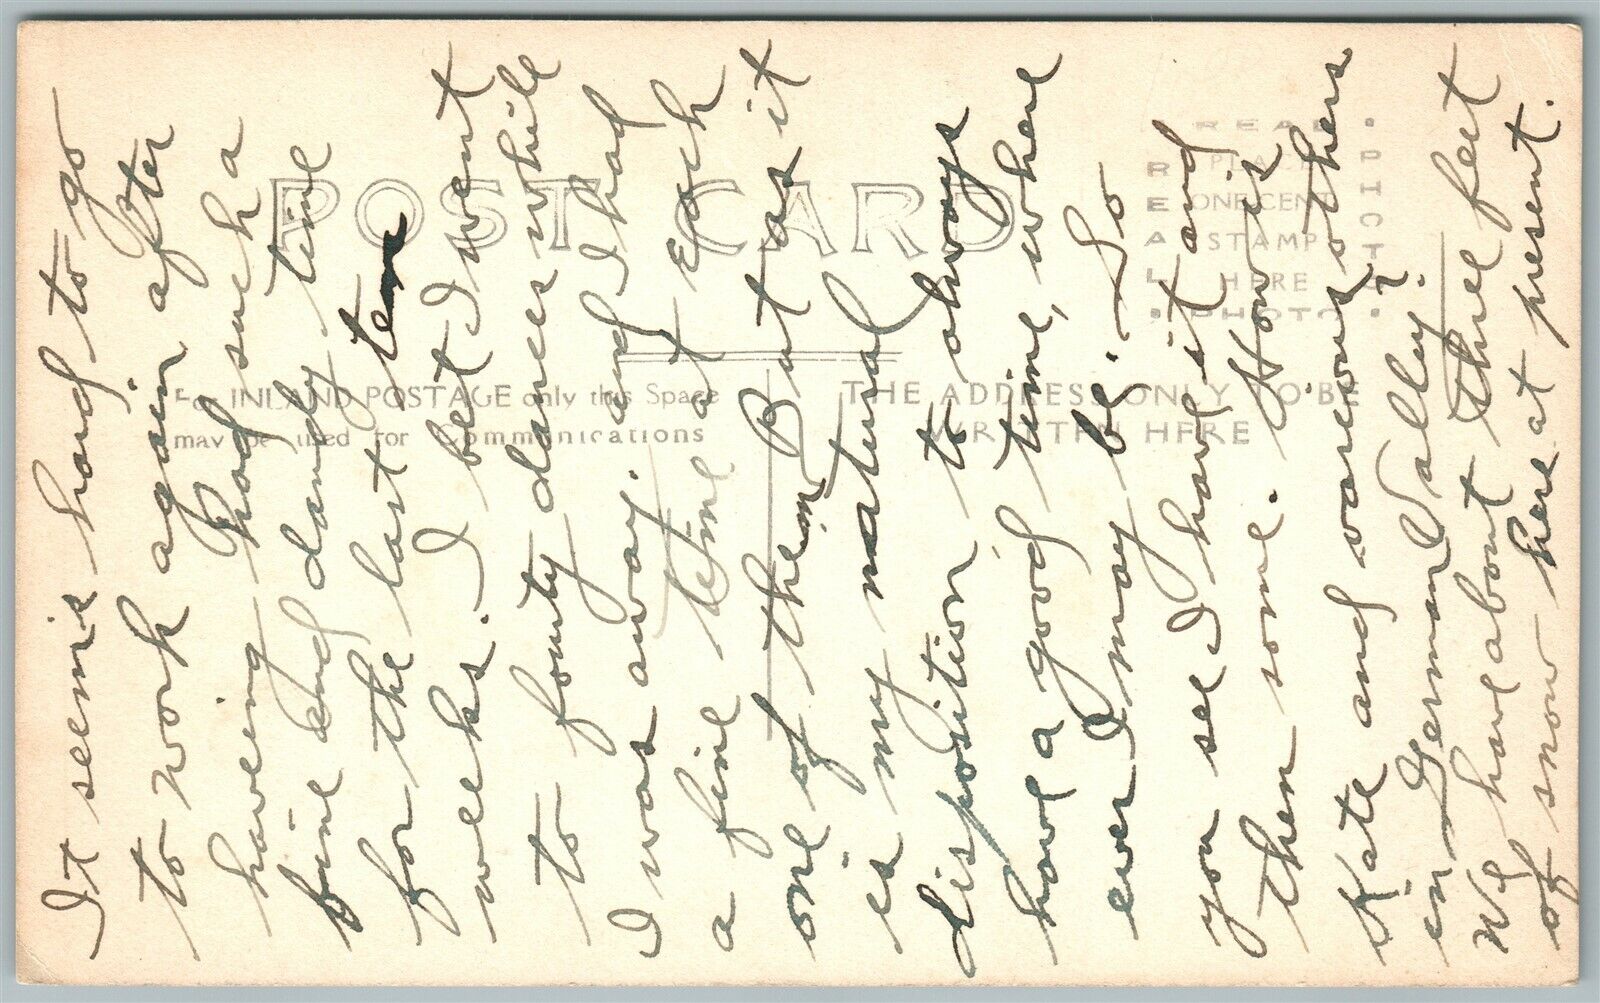 It seems hard to go
to work again after
having had such a
fine and dandy time
for the last ten
weeks. I bet I went
to fourty dances while
I was away. and I had
a fine time at each
one of them But as it
is my natural
disposition to always
have a good time, where
ever I may be. So
you see I have it and
then some. How is
Kate and various others
in German Valley?
We have about three feet
of snow here at present.
POST CARD
For INLAND POSTAGE only this Space
may be used for Communications
THE ADDRESS ONLY TO BE
WRITTEN HERE
REAL • PHOTO •
REAL • PHOTO •
PLACE
ONE CENT
STAMP
HERE